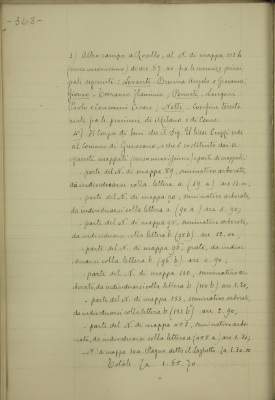 - 368 -
3) Altro campo a Zovallo, al N. di mappa 103 b
di are 67. 20 fra le coerenze princi-
pali seguenti: Levante, Angelo e Giovanni,
Giorno - Flaminio; Ponente, Longoni
Paolo e Consonni Cesare; Notte, Confine territo-
riale fra le provincie di Milano e di Como
4) Il Corpo di beni che il Sig. Eliseo Longoni cede
al Comune di e che è costituito dai
seguenti mappali (numeri provvisori) o parte di mappali:
- parte del N. di mappa 89, seminativo arborato,
da individuarsi colla lettera a (89 a) are
- parte del N. di mappa 90, seminativo arborato,
da individuarsi colla lettera a (90 a) are 5. 90;
- parte del N. di mappa 95, seminativo arborato,
da individuarsi colla lettera b (95 b) are 12. 00
- parte del N. di mappa 96, prato, da indivi-
duarsi colla lettera b (96 b) are 0. 90;
- parte del N. di mappa 110, seminativo ar-
borato, da individuarsi colla lettera b (110 b) are 1. 20,
- parte del N. di mappa 193, seminativo arborato,
da individuarsi colla lettera b (193 b) are 2. 90,
- parte del N. di mappa 495, seminativo arbo-
rato, da individuarsi colla lettera a (495 a) are 1. 80;
N. di mappa detto il Laghetto
Totale Ea 1. 65. 70